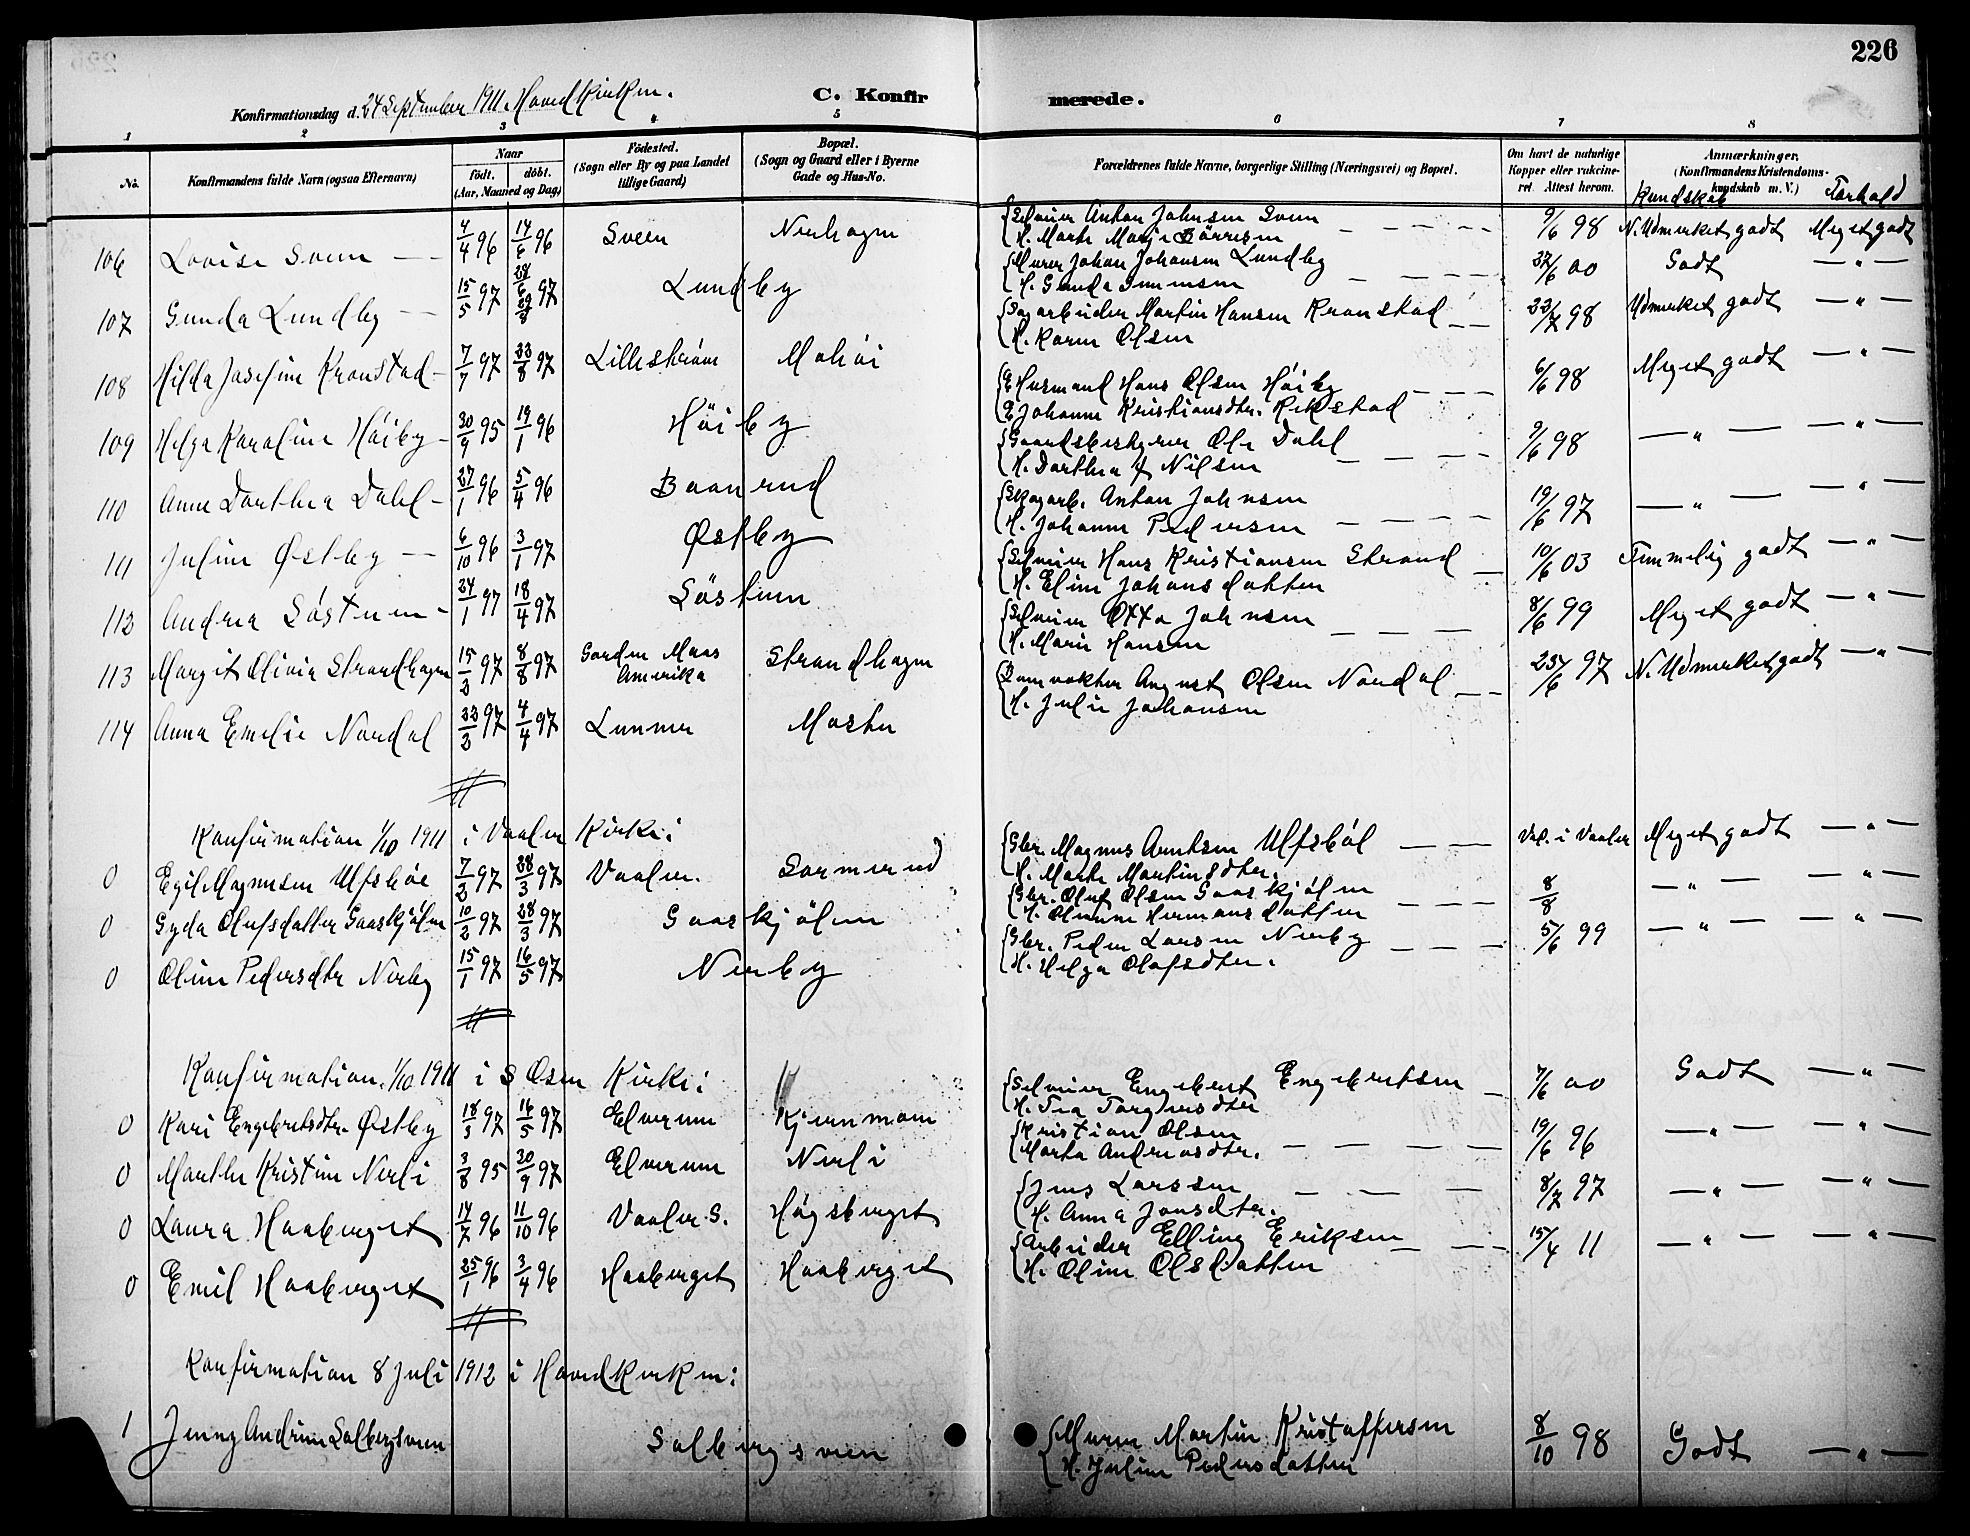 226
Konfirmationsdag d. 24 September 1911. Hovedkirken.
C. Konfirmerede.
1 2 3 4 5 6 7 8
No.
Konfirmandens fulde Navn (ogsaa Efternavn)
Naar
født. døbt.
(Aar, Maaned og Dag)
Fødested.
(Sogn eller By og paa Landet
tillige Gaard)
Bopæl.
(Sogn og Gaard eller i Byerne
Gade og Hus-No.
Forældrenes fulde Navne, borgerlige Stilling (Næringsvei) og Bopæl.
Om havt de naturlige
Kopper eller vakcine-
ret. Attest herom.
Anmærkninger.
(Konfirmandens Kristendoms-
kundskab m. V.)
Kundskab Forhold
106 Lovise Sveen 4/4 96 14/6 96 Sveen Nerhagen
{Selveier Anton Johnsen Sveen
H. Marte Marie Børresen 9/6 98 N. Udmerket godt Meget godt
107 Gunda Lundby 15/5 97 Lundby
{Murer Johan Johansen Lundby
H. Gunda 00 Godt — " —
108 Hilda Josefine Kronstad 7/7 97 22/8 97 Lillestrøm Mohøi
{Sagarbeider Martin Hansen Kronstad
H. Karen Olsen 98 Udmerket godt — " —
109 Helga Karoline Høiby 30/9 95 19/1 96 Høiby
{E Husmand Hans Olsen Høiby
E Johanne Kristiansdtr. Rikstad 6/6 98 Meget godt — " —
110 Anne Dorthea Dahl 27/1 96 5/4 96 Baanrud
{Gaardsbestyrer Ole Dahl
H. Dorthea Nilsen 9/6 98 — " — — " —
111 Juline Østby 6/10 96 3/1 97 Østby
{Skogarb. Anton Johnsen
H. Johanne Pedersen 19/6 97 — " — — " —
112 Andrea Søstuen 24/1 97 18/4 97 Søstuen
{Selveier Hans Kristiansen Strand
H. Eline Johansdatter 10/6 03 Temmelig godt — " —
113 Margit Olivia Strandhagen 15/3 97 8/8 97 Amerika Strandhagen
{Selveier Otto Johnsen
H. Marie Hansen 8/6 99 Meget godt — " —
114 Anna Emelie Nordal 97 4/4 97 Lunner Moster
{Damvokter August Olsen Nordal
H. Julie Johansen 25/6 97 N. Udmerket godt — " —
Konfirmation 1/10 1911 i Vaaler Kirke:
0 Egil Magnusen Ulfsbøl 7/2 97 28/3 97 Vaaler. Sormerud
{Gbr. Magnus Arntsen Ulfsbøl
H. Marte Martinsdter. Vac. i Vaaler Meget godt — " —
0 Gyda Olufsdatter Gaaskjølen 10/2 97 28/3 97 Gaaskjølen
{Gbr. Oluf Olsen Gaaskjølen
H. Hermansdatter 8/8 — " — — " —
0 Oline Pedersdtr Nerby 15/1 97 16/5 97 Nerby
{Gbr. Peder Larsen Nerby
H. Helga Olafsdter. 5/6 99 — " — — " —
Konfirmation. 1/10 1911 i S Osen Kirke:
0 Kari Engebretsdtr. Østby 18/3 97 16/5 97 Elverum Kjernmoen
{Selveier Engebret Engebretsen
H. Tea Torgersdter 7/6 00 Godt — " —
0 Marthe Kristine Nerli 3/8 95 30/9 97 Elverum Nerli
{Kristian Olsen
Marta Andreasdter. 19/6 96 — " — — " —
0 Laura Haaberget 14/7 96 11/10 96 Vaaler S. Høgsberget
{Jens Larssen
H. Anna Jonsdter. 8/7 97 — " — — " —
0 Emil Haaberget 25/1 96 3/4 96 Haaberget Haaberget
{Arbeider Elling Eriksen
H. Oline Olsdatter 15/4 11 — " — — " —
Konfirmation 8 Juli 1912 i Hovedkirken:
1 Jenny Andrine Solbergsveen Solbergsveen
{Murer Martin Kristoffersen
H. Juline Pedersdatter 8/10 98 Godt — " —